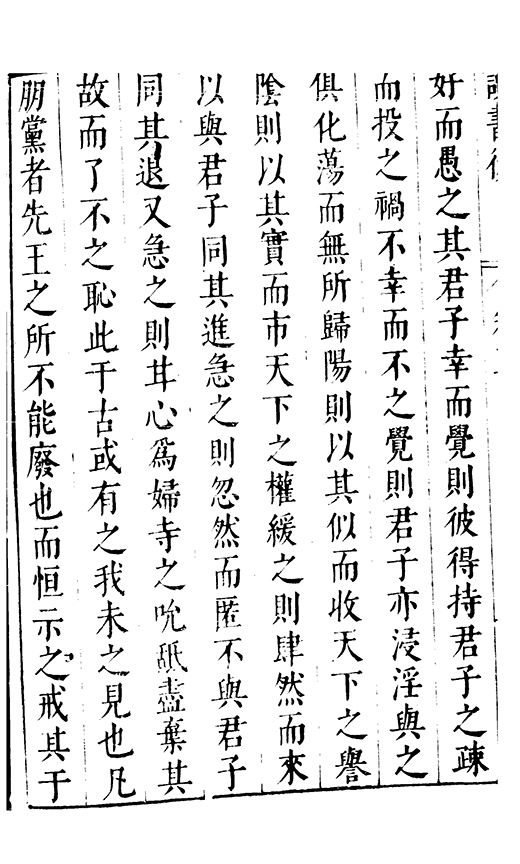 讀書後
好而愚之其君子幸而覺則彼得持君子之疎
而投之禍不幸而不之覺則君子亦浸淫與之
俱化蕩而無所歸陽則以其似而收天下之譽
陰則以其實而市天下之權緩之則肆然而來
以與君子同其進急之則忽然而匿不與君子
同其退又急之則甘心爲婦寺之吮舐盡棄其
故而了不之恥此于古或有之我未之見也凡
朋黨者先王之所不能廢也而恒示之戒其于